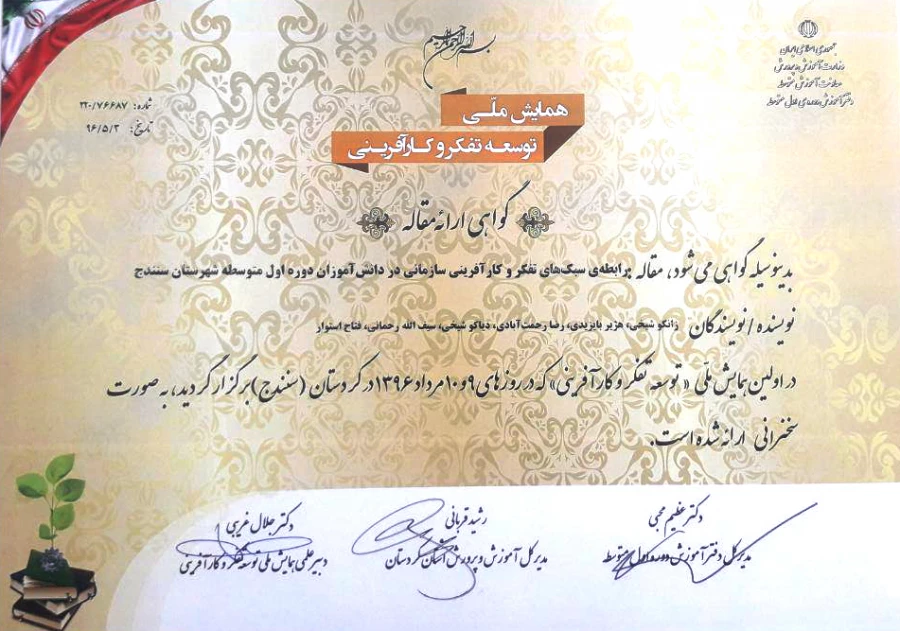 بسم الله الرحمن الرحیم
جمهوری اسلامی ایران
وزارت آموزش و پرورش
معاونت آموزش متوسطه
دفتر آموزش دوره‌ی اول متوسطه
شماره: ۲۲۰/۷۶۶۸۷
تاریخ: ۹۶/۵/۳
همایش ملّـی
توسعه تفکر و کـارآفرینـی
گواهی ارائه مقاله
بدینوسیله گواهی می شود، مقاله رابطه‌ی سبک‌های تفکر و کارآفرینی سازمانی در دانش‌آموزان دوره اول متوسطه شهرستان سنندج
نویسنده / نویسندگان زانکو شیخی، هژیر بایزیدی، رضا رحمت‌آبادی، دیاکو شیخی، سیف الله رحمانی، فتاح استوار
در اولین همایش ملّی « توسعه تفکر و کارآفرینی» که در روز های ۹ و ۱۰ مرداد ۱۳۹۶ در کردستان (سنندج) برگزار گردید، به صورت
سخنرانی ارائه شده است.
دکتر عظیم محبی
مدیر کل دفتر آموزش دوره اول متوسطه
رشید قربانی
مدیر کل آموزش و پرورش استان کردستان
دکتر جلال غریبی
دبیر علمی همایش ملی توسعه تفکر و کارآفرینی